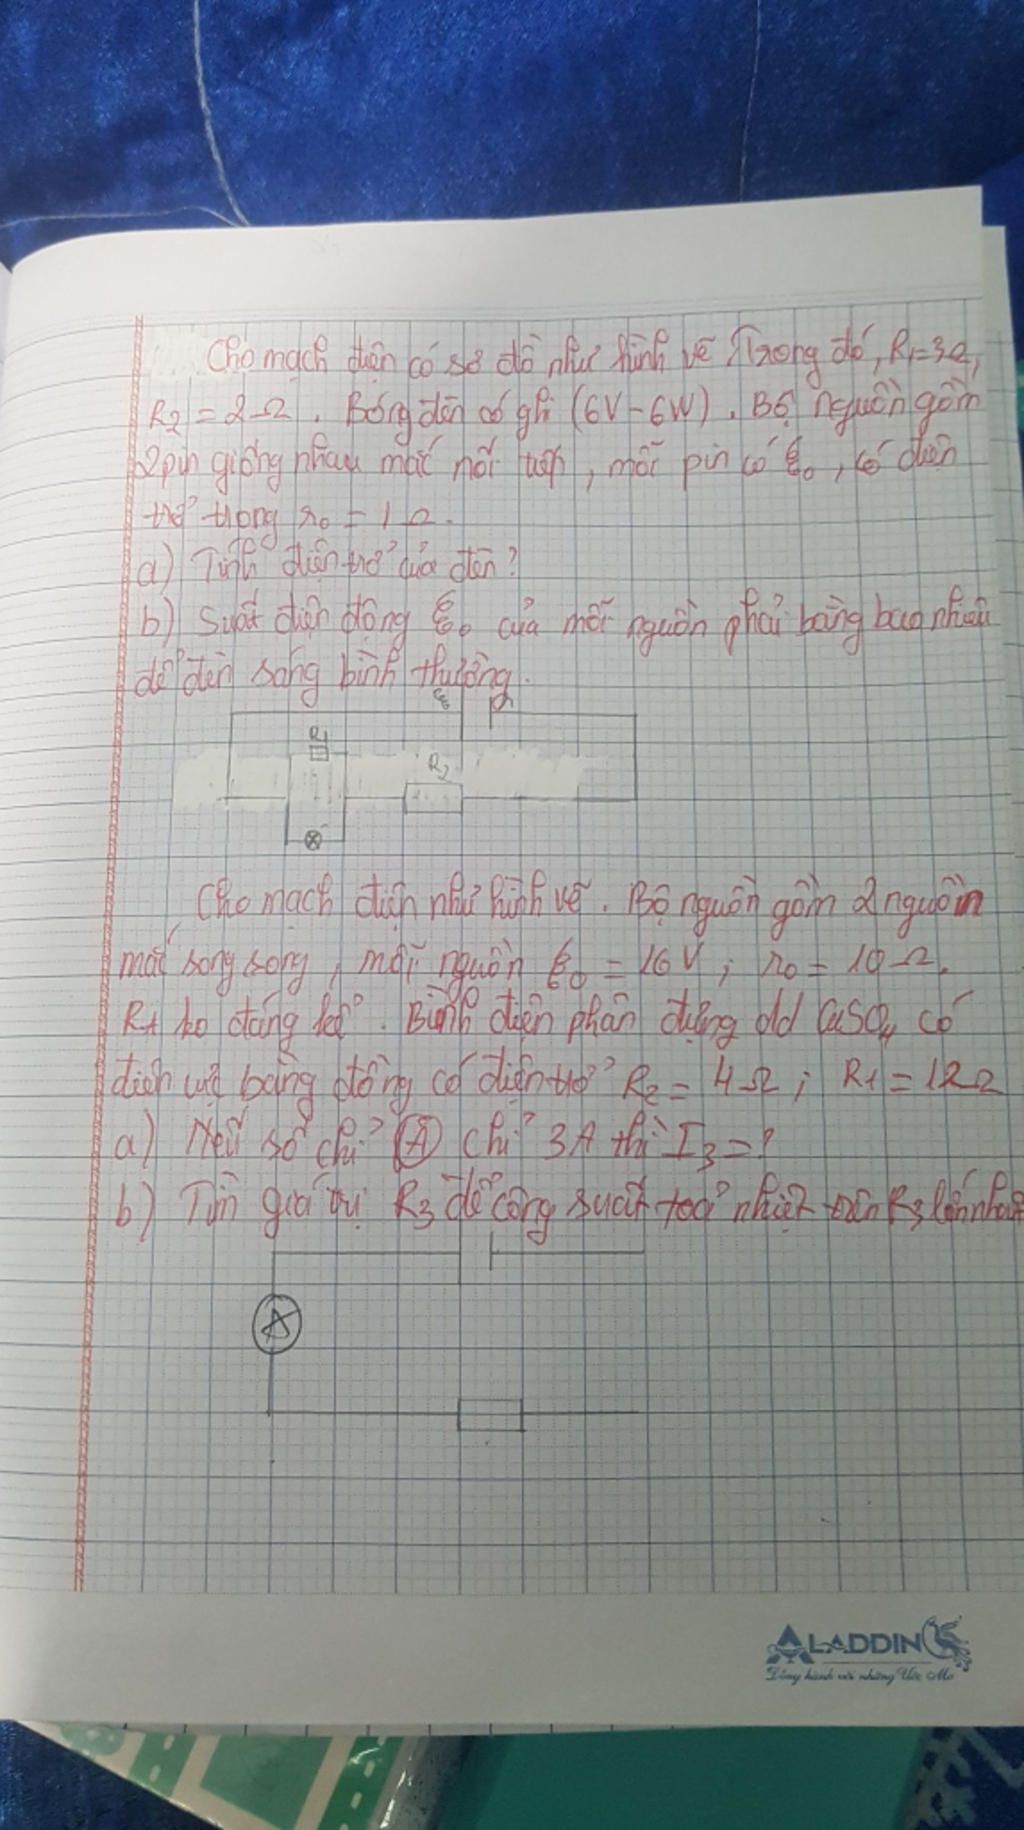 Cho mạch điện có sơ đồ như hình vẽ Trong đó, R1=3Ω,
R2 = 2Ω. Bóng đèn có ghi (6V-6W). Bộ nguồn gồm
2 pin giống nhau mắc nối tiếp, mỗi pin có ξo, có điện
trở trong ro = 1Ω.
a) Tính điện trở của đèn?
b) Suất điện động ξo của mỗi nguồn phải bằng bao nhiêu
để đèn sáng bình thường.
ξo
R1
R2
Cho mạch điện như hình vẽ. Bộ nguồn gồm 2 nguồn
mắc song song, mỗi nguồn ξo = 16V; ro = 10Ω.
RA ko đáng kể. Bình điện phân đựng dd CuSO4 có
điện cực bằng đồng có điện trở R2 = 4Ω; R1 = 12Ω
a) Nếu số chỉ (A) chỉ 3A thì I3=?
b) Tìm giá trị R3 để công suất toả nhiệt trên R3 lớn nhất
A
ALADDIN
Đồng hành với những Ước Mơ